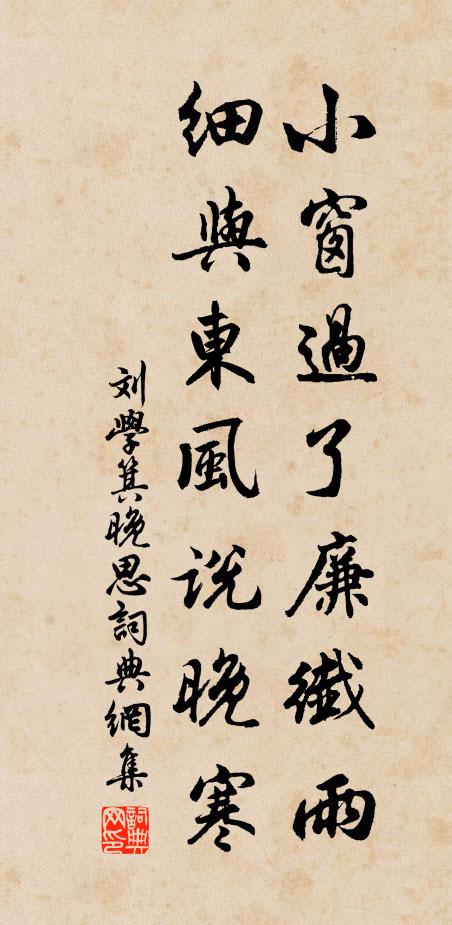 小窗過了廉纖雨
細與東風説晚寒
刘學箕晚思詞典網集
詞典網印